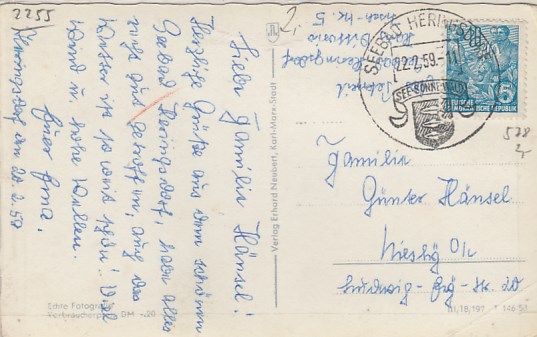 2255
2,-
Liebe Familie Hänsel!
Herzliche Grüße aus dem schönen
Seebad Heringsdorf, haben alles
gut getroffen, auch das
Wasser ist so weit schön! Viel
Wind u. hohe Wellen.
Eure Erna.
Heringsdorf, den 20.2.59
Echte Fotografie
Verbraucherpreis DM -.20
Verlag Erhard Neubert, Karl-Marx-Stadt
SEEBAD HERINGSDORF
22.2.59.-11
SEE SONNE WALD
DEUTSCHE DEMOKRATISCHE REPUBLIK
5
Heringsdorf
Viktoria
Str. 5
578
2,-
Familie
Günter Hänsel
Niesky O/L
Ludwig-Ey-Str. 20
III/18/197